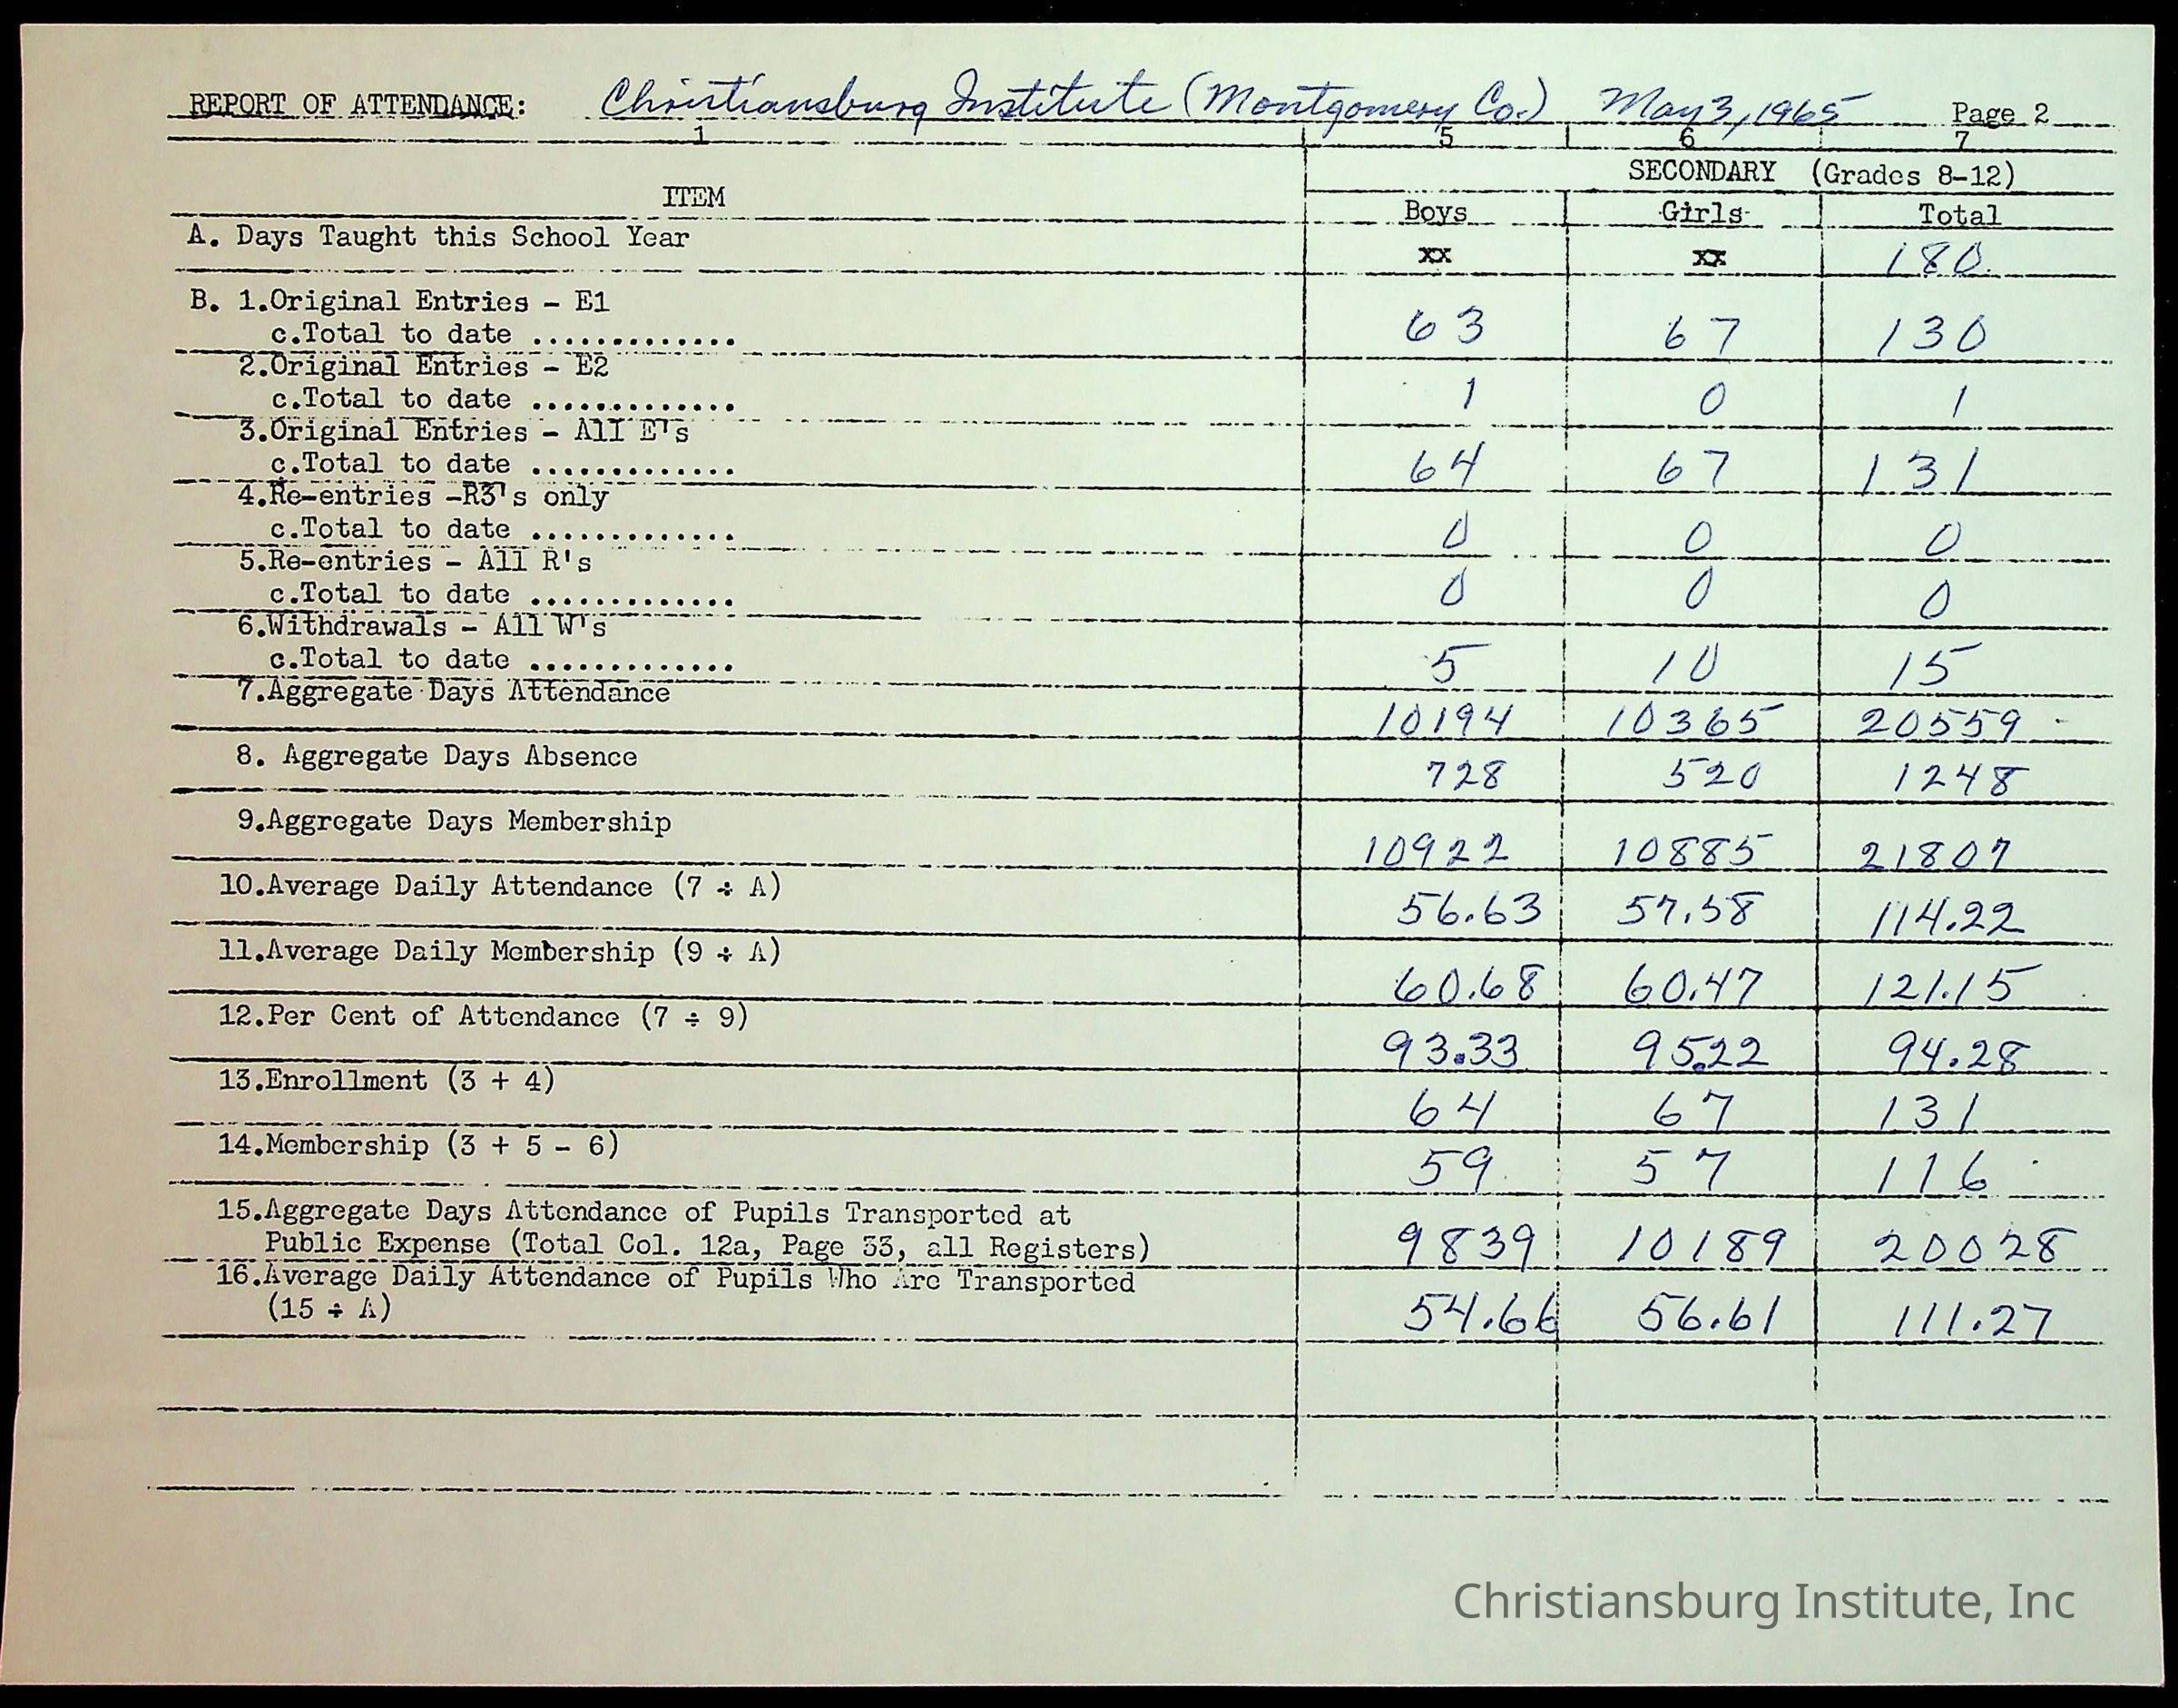 REPORT OF ATTENDANCE: Christiansburg Institute (Montgomery Co.) May 3, 1965 Page 2
1 5 6 7
SECONDARY (Grades 8-12)
ITEM
Boys Girls Total
A. Days Taught this School Year
xx xx 180
B. 1.Original Entries - E1
c.Total to date ............. 63 67 130
2.Original Entries - E2
c.Total to date ............. 1 0 1
3.Original Entries - All E's
c.Total to date ............. 64 67 131
4.Re-entries -R3's only
c.Total to date ............. 0 0 0
5.Re-entries - All R's
c.Total to date ............. 0 0 0
6.Withdrawals - All W's
c.Total to date ............. 5 10 15
7.Aggregate Days Attendance
10194 10365 20559
8. Aggregate Days Absence
728 520 1248
9.Aggregate Days Membership
10922 10885 21807
10.Average Daily Attendance (7 ÷ A)
56.63 57.58 114.22
11.Average Daily Membership (9 ÷ A)
60.68 60.47 121.15
12.Per Cent of Attendance (7 ÷ 9)
93.33 95.22 94.28
13.Enrollment (3 + 4)
64 67 131
14.Membership (3 + 5 - 6)
59 57 116
15.Aggregate Days Attendance of Pupils Transported at
Public Expense (Total Col. 12a, Page 33, all Registers) 9839 10189 20028
16.Average Daily Attendance of Pupils Who Are Transported
(15 ÷ A) 54.66 56.61 111.27
Christiansburg Institute, Inc